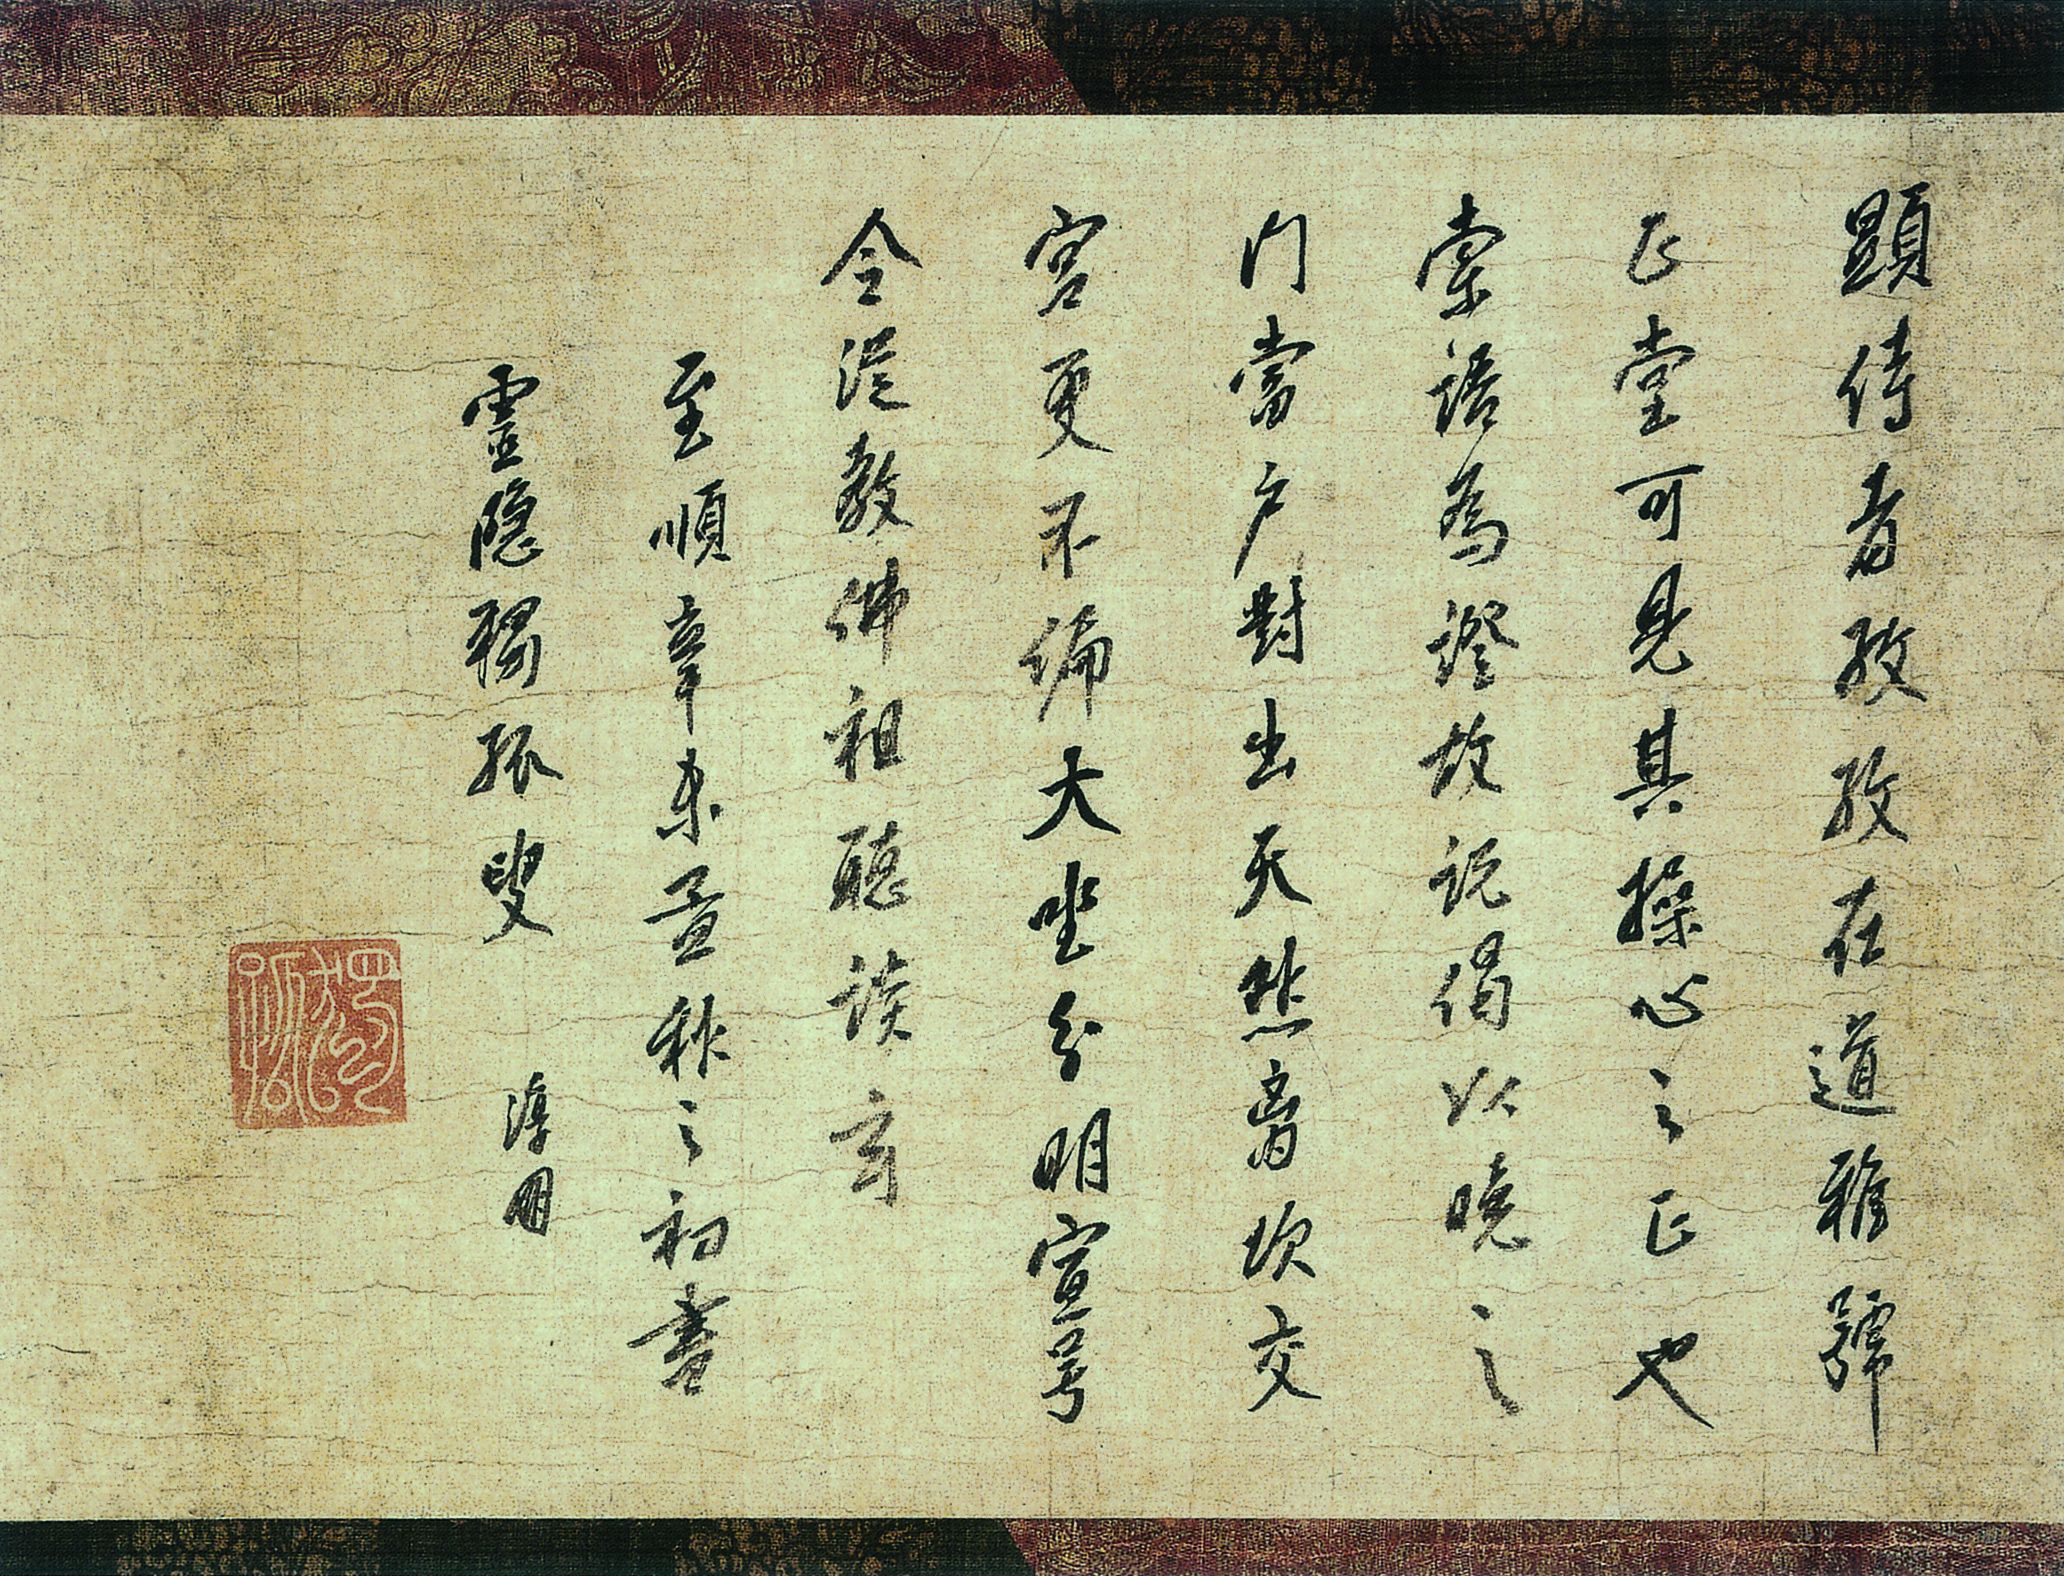 顯侍者孜孜在道雅號
正堂可見其操心之正也
索語為證故説偈以曉之
门當户對出天然离坎交
宮更不偏大坐分明宣号
令從教佛祖聽談玄
至順辛未孟秋之初書
靈隐獨孤叟 淳朋